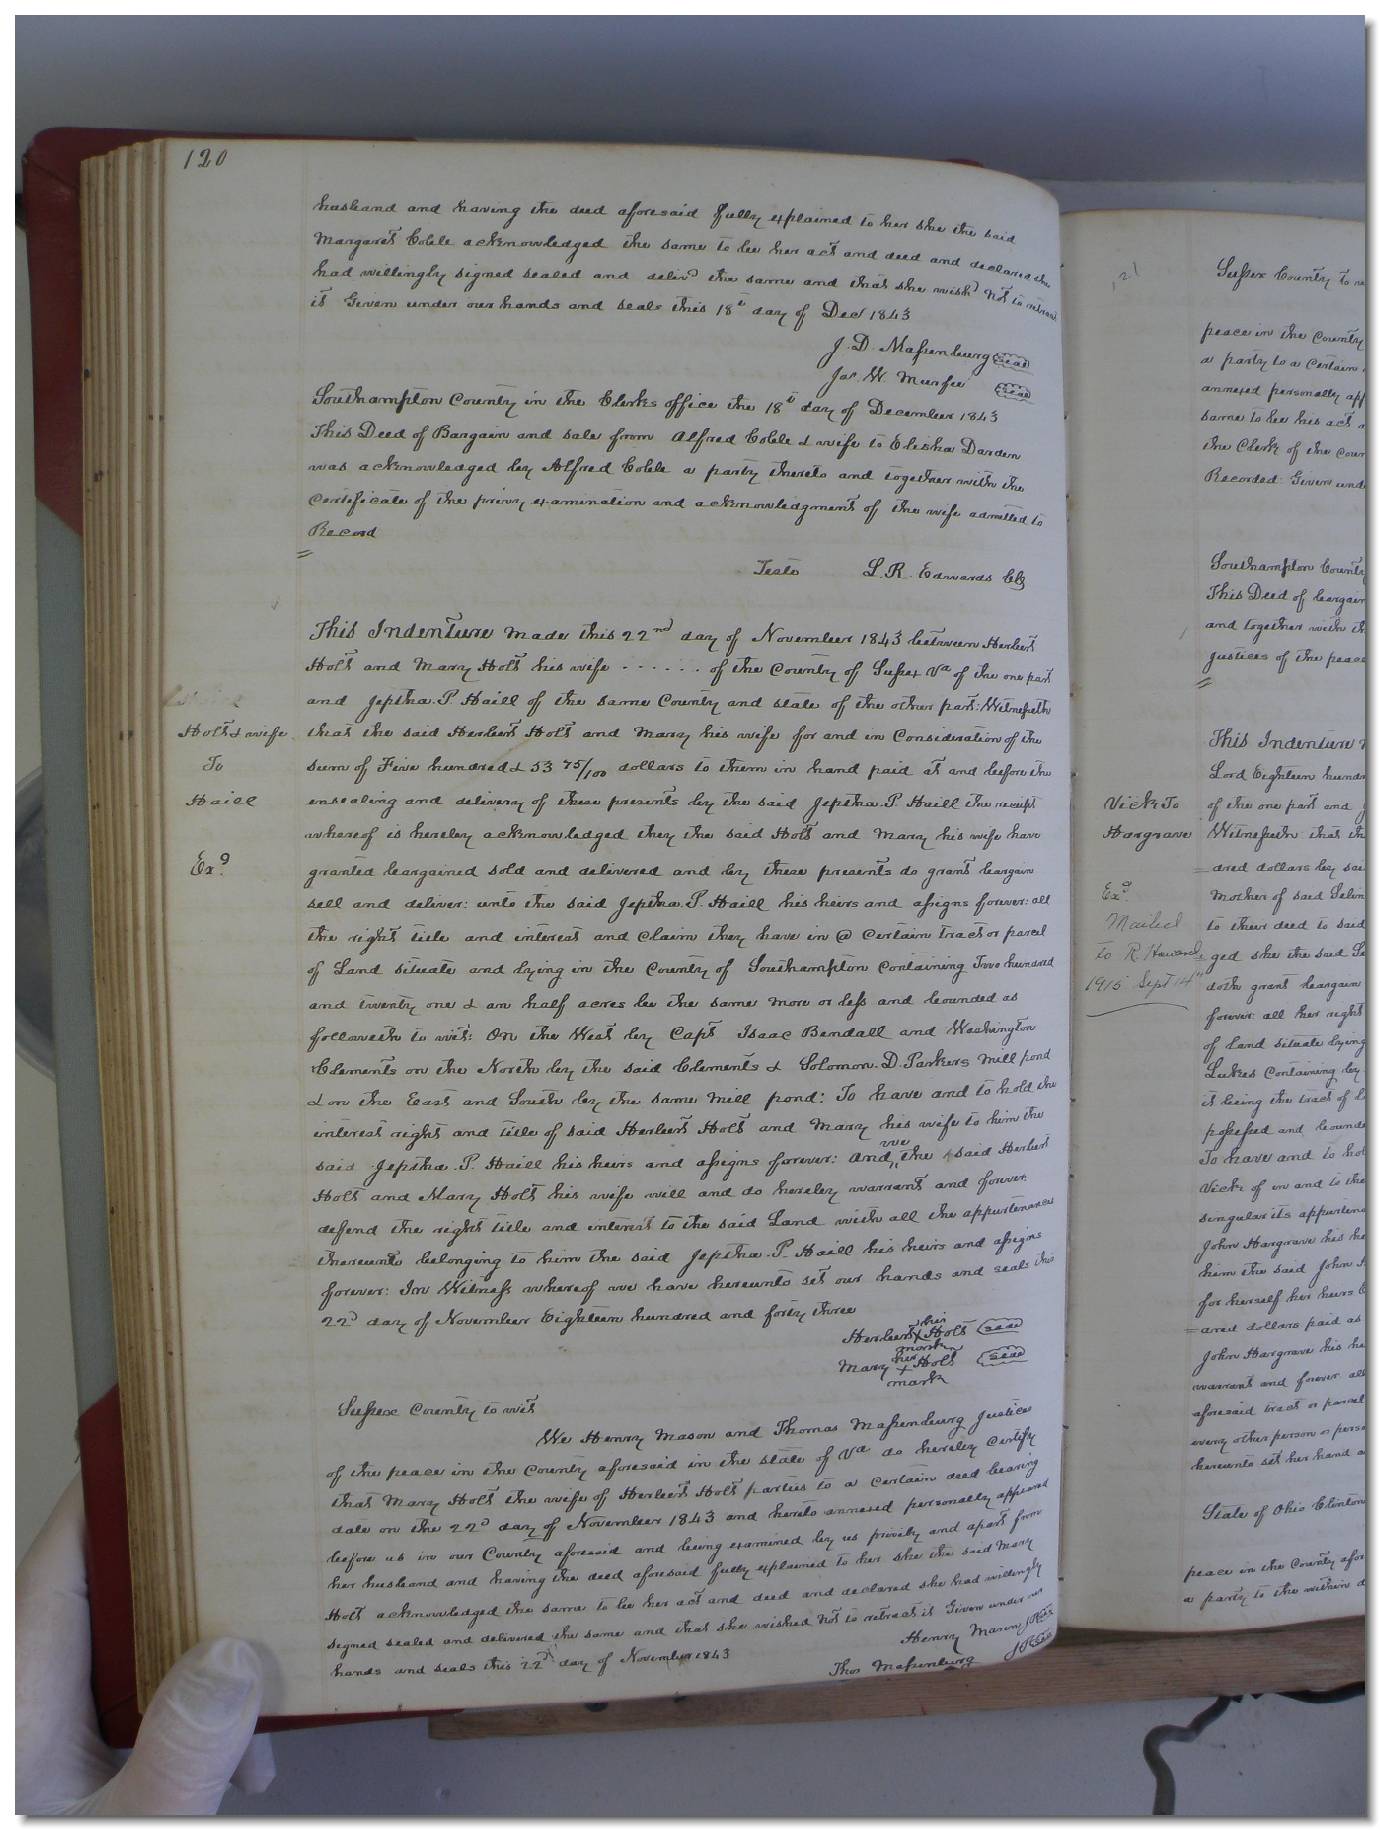 120
husband and having the deed aforesaid fully explained to her she the said
Margaret Cobb acknowledged the same to be her act and deed and declared she
had willingly signed sealed and delivd the same and that she wishd not to retract
it Given under our hands and seals this 18th day of Decr 1843
J. D. Massenburg seal
Jas. W. Murfee seal
Southampton County in the Clerks office the 18th day of December 1843
This Deed of Bargain and sale from Alfred Cobb & wife to Elisha Darden
was acknowledged by Alfred Cobb a party thereto and together with the
certificate of the privy examination and acknowledgment of the wife admitted to
Record
Teste L. R. Edwards Clk
This Indenture made this 22nd day of November 1843 between Herbert
Holt and Mary Holt his wife - - - - - - of the County of Sussex Va of the one part
and Jeptha. P. Haill of the same County and state of the other part: Witnesseth
Holt & wife
To
Haill
Exd.
that the said Herbert Holt and Mary his wife for and in Consideration of the
sum of Five hundred & 53 75/100 dollars to them in hand paid at and before the
ensealing and delivery of these presents by the said Jeptha. P. Haill the receipt
whereof is hereby acknowledged they the said Holt and Mary his wife have
granted bargained sold and delivered and by these presents do grant bargain
sell and deliver: unto the said Jeptha. P. Haill his heirs and assigns forever: all
the right title and interest and claim they have in @ certain tract or parcel
of Land situate and lying in the County of Southampton Containing Two hundred
and twenty one & am half acres be the same more or less and bounded as
followeth to wit: On the West by Capt Isaac Bendall and Washington
Clements on the North by the said Clements & Solomon. D. Parkers mill pond
& on the East and South by the same mill pond: To have and to hold the
interest right and title of said Herbert Holt and Mary his wife to him the
said Jeptha. P. Haill his heirs and assigns forever: And we the said Herbert
Holt and Mary Holt his wife will and do hereby warrant and forever
defend the right title and interest to the said Land with all the appurtenances
thereunto belonging to him the said Jeptha. P. Haill his heirs and assigns
forever: In Witness whereof we have hereunto set our hands and seals this
22d day of November Eighteen hundred and forty three
his
Herbert X Holt seal
mark
her
Mary X Holt seal
mark
Sussex County to wit
We Henry Mason and Thomas Massenburg Justices
of the peace in the County aforesaid in the state of Va do hereby certify
that Mary Holt the wife of Herbert Holt parties to a certain deed bearing
date on the 22d day of November 1843 and hereto annexed personally appeared
before us in our County aforesaid and being examined by us privily and apart from
her husband and having the deed aforesaid fully explained to her she the said Mary
Holt acknowledged the same to be her act and deed and declared she had willingly
signed sealed and delivered the same and that she wished not to retract it Given under our
hands and seals this 22d day of November 1843
Henry Mason
Thos Massenburg
121
Sussex County to
peace in the County
a party to a certain
annexed personally
same to be his act
the Clerk of the
Recorded: Given
Southampton County
This Deed of bargain
and together with
Justices of the peace
This Indenture
Lord Eighteen
Vick To
Hargrave
Exd.
Mailed
to R.
1915 Sept 14th
of the one part and
Witnesseth: that
dred dollars by
Mother of said
to their deed to said
ged she the said
doth grant bargain
forever: all her right
of land situate lying
Lukes Containing by
it being the tract of
possessed and
To have and to
Vick of in and to the
singular its
John Hargrave his
him the said John
for herself her heirs
dred dollars paid as
John Hargrave his
warrant and forever
aforesaid tract or parcel
every other person or
hereunto set her hand
State of Ohio Clinton
peace in the County
a party to the within